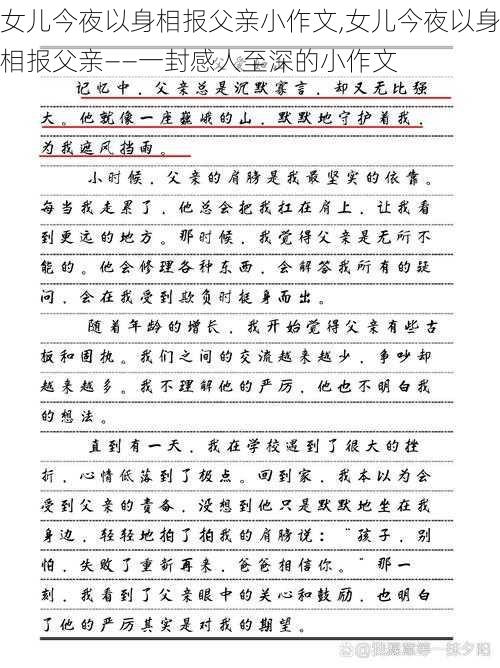 女儿今夜以身相报父亲小作文,女儿今夜以身
相报父亲——一封感人至深的小作文
记忆中，父亲总是沉默寡言，却又无比强
大。他就像一座巍峨的山，默默地守护着我，
为我遮风挡雨。
小时候，父亲的肩膀是我最坚实的依靠。
每当我走累了，他总会把我扛在肩上，让我看
到更远的地方。那时候，我觉得父亲是无所不
能的。他会修理各种东西，会解答我所有的疑
问，会在我受到欺负时挺身而出。
随着年龄的增长，我开始觉得父亲有些古
板和固执。我们之间的交流越来越少，争吵却
越来越多。我不理解他的严厉，他也不明白我
的想法。
直到有一天，我在学校遇到了很大的挫
折，心情低落到了极点。回到家，我本以为会
受到父亲的责备，没想到他只是默默地坐在我
身边，轻轻地拍了拍我的肩膀说：“孩子，别
怕，失败了重新再来，爸爸相信你。”那一
刻，我看到了父亲眼中的关心和鼓励，也明白
了他的严厉其实是对我的期望。